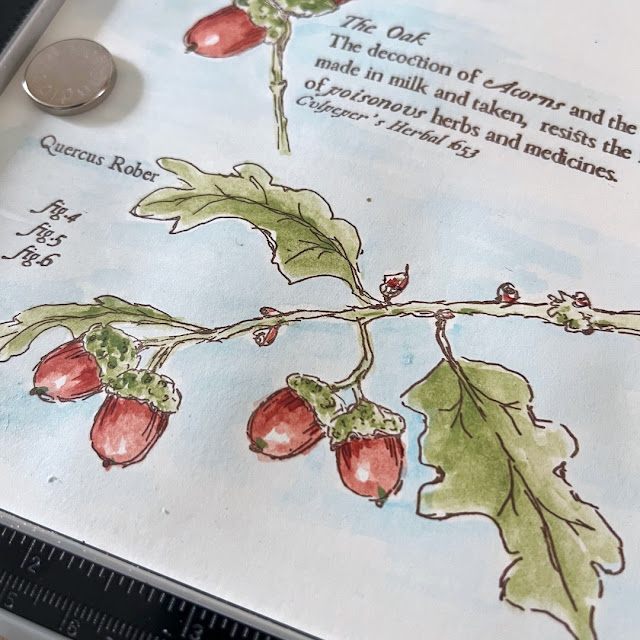 The Oak
The decoction of Acorns and the
made in milk and taken, resists the
of poisonous herbs and medicines.
Culpeper's Herbal 1653
Quercus Rober
fig.4
fig.5
fig.6
2
3
5
6